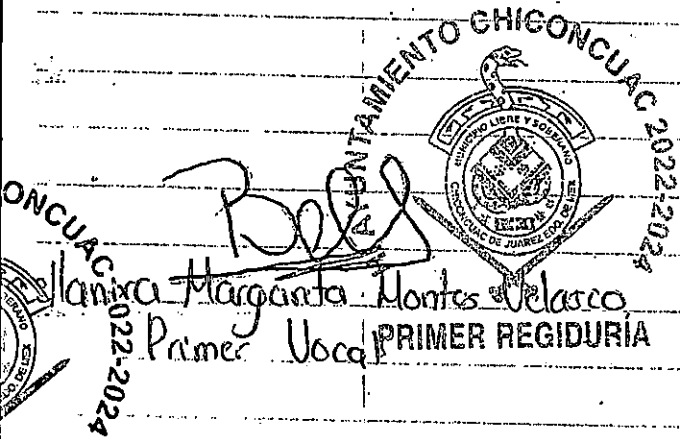 AYUNTAMIENTO CHICONCUAC 2022-2024
MUNICIPIO LIBRE Y SOBERANO
CHICONCUAC DE JUAREZ EDO. DE MEX
ONCUAC 2022-2024
EDO. DE MEX
Margarita Montes Velasco
Primer Vocal
PRIMER REGIDURÍA